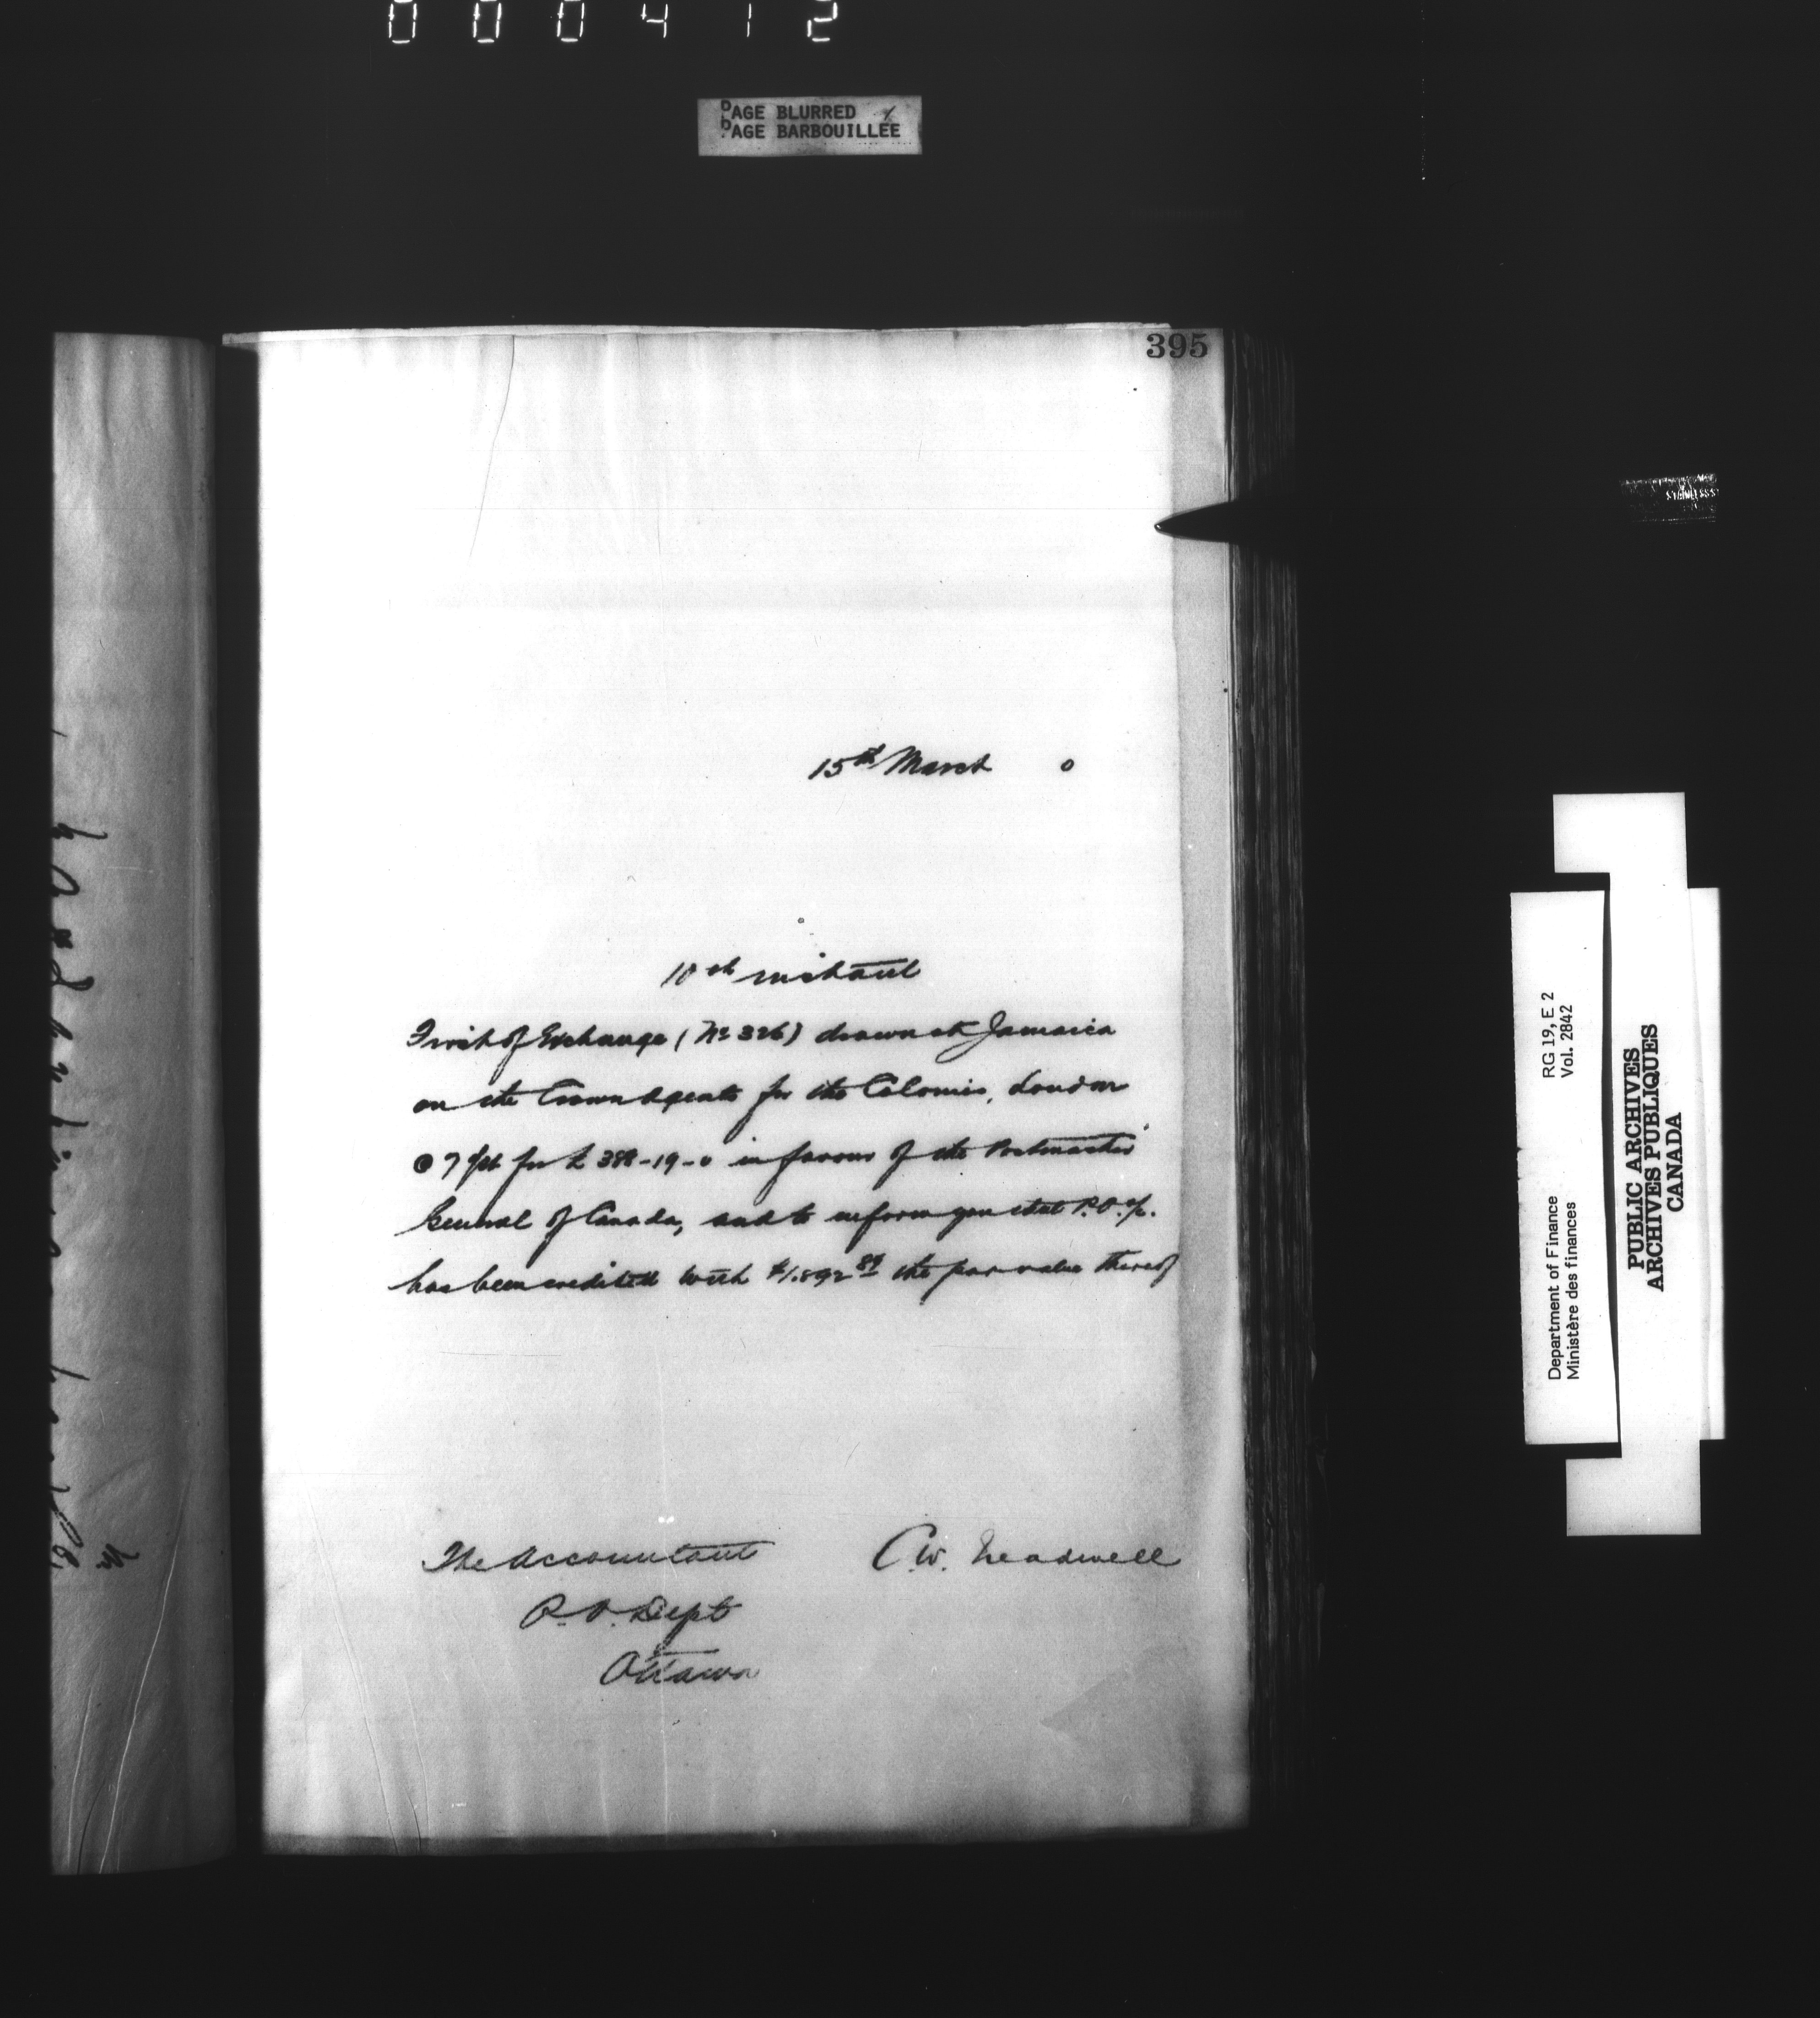 000412
PAGE BLURRED
PAGE BARBOUILLÉE
395
15th March 0
10th instant
First of Exchange (No 326) drawn at Jamaica
on the Crown Agents for the Colonies, London
@ 7 for £ 388-19-0 in favour of the Postmaster
General of Canada, and to inform you that P.O. a/c.
has been credited with $1.892 89 the par value thereof
The Accountant
P.O. Dept
Ottawa
C.W. Treadwell
RG 19, E 2
Vol. 2842
Department of Finance
Ministère des finances
PUBLIC ARCHIVES
ARCHIVES PUBLIQUES
CANADA
STAINLESS